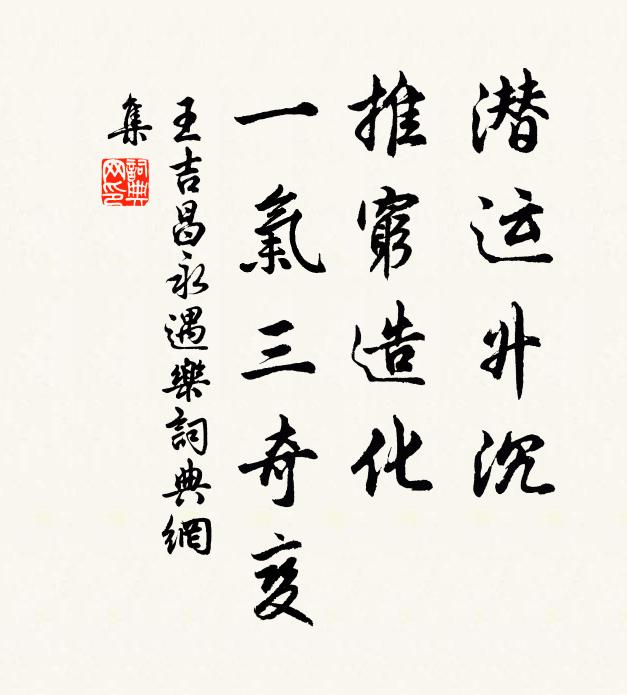 潜运升沉
推窮造化
一氣三奇变
王吉昌永遇樂詞典網
集
詞典
网印